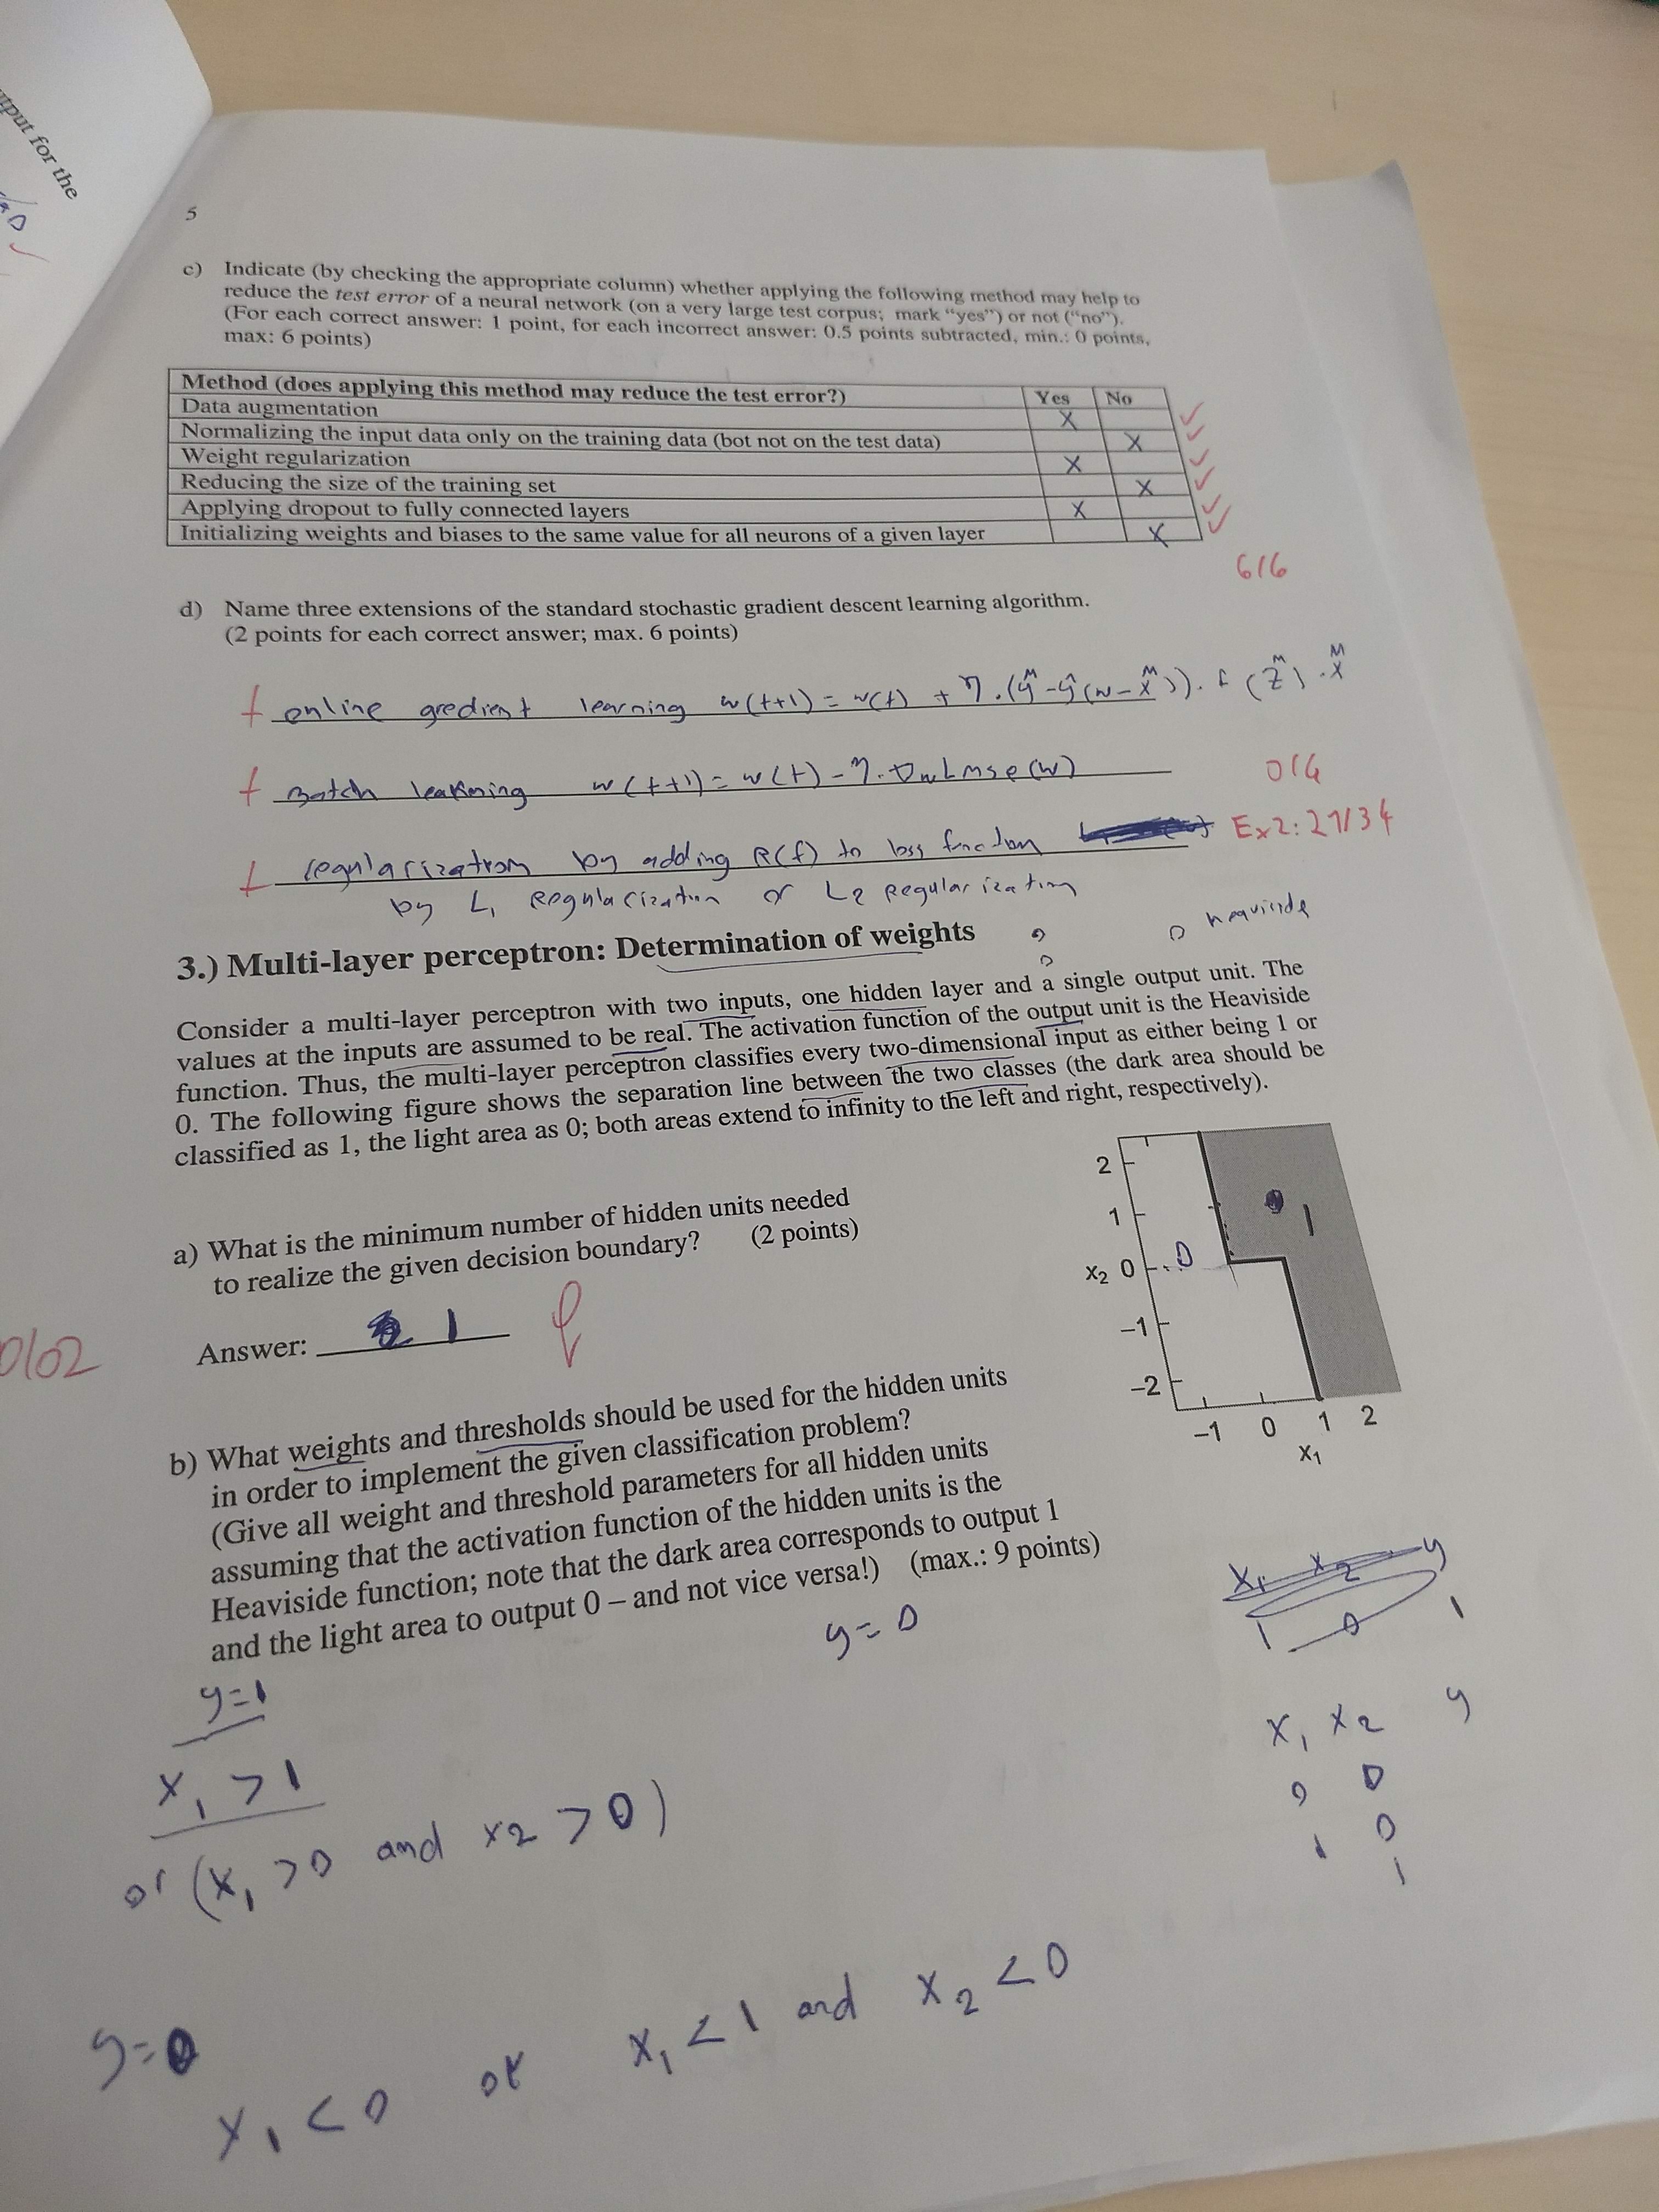 tput for the
5
c) Indicate (by checking the appropriate column) whether applying the following method may help to
reduce the test error of a neural network (on a very large test corpus; mark “yes”) or not (“no”).
(For each correct answer: 1 point, for each incorrect answer: 0.5 points subtracted, min.: 0 points,
max: 6 points)
Method (does applying this method may reduce the test error?) Yes No
Data augmentation X
Normalizing the input data only on the training data (bot not on the test data) X
Weight regularization X
Reducing the size of the training set X
Applying dropout to fully connected layers X
Initializing weights and biases to the same value for all neurons of a given layer X
6/6
d) Name three extensions of the standard stochastic gradient descent learning algorithm.
(2 points for each correct answer; max. 6 points)
online gredient learning w(t+1) = w(t) + η.
Batch learning w(t+1) = w(t) - η. ∇w Lmse(w)
0/6
regularization by adding R(f) to loss function
Ex2: 27/34
by L1 Regularization or L2 Regularization
3.) Multi-layer perceptron: Determination of weights
Consider a multi-layer perceptron with two inputs, one hidden layer and a single output unit. The
values at the inputs are assumed to be real. The activation function of the output unit is the Heaviside
function. Thus, the multi-layer perceptron classifies every two-dimensional input as either being 1 or
0. The following figure shows the separation line between the two classes (the dark area should be
classified as 1, the light area as 0; both areas extend to infinity to the left and right, respectively).
a) What is the minimum number of hidden units needed
to realize the given decision boundary? (2 points)
Answer: 1
0/02
2
1
x2 0
-1
-2
-1 0 1 2
x1
0
1
b) What weights and thresholds should be used for the hidden units
in order to implement the given classification problem?
(Give all weight and threshold parameters for all hidden units
assuming that the activation function of the hidden units is the
Heaviside function; note that the dark area corresponds to output 1
and the light area to output 0 – and not vice versa!) (max.: 9 points)
y=0
y=1
x1 > 1
or (x1 > 0 and x2 > 0)
x1 x2 y
0 0
1 0
1
y=0
x1 < 0 or x1 < 1 and x2 < 0